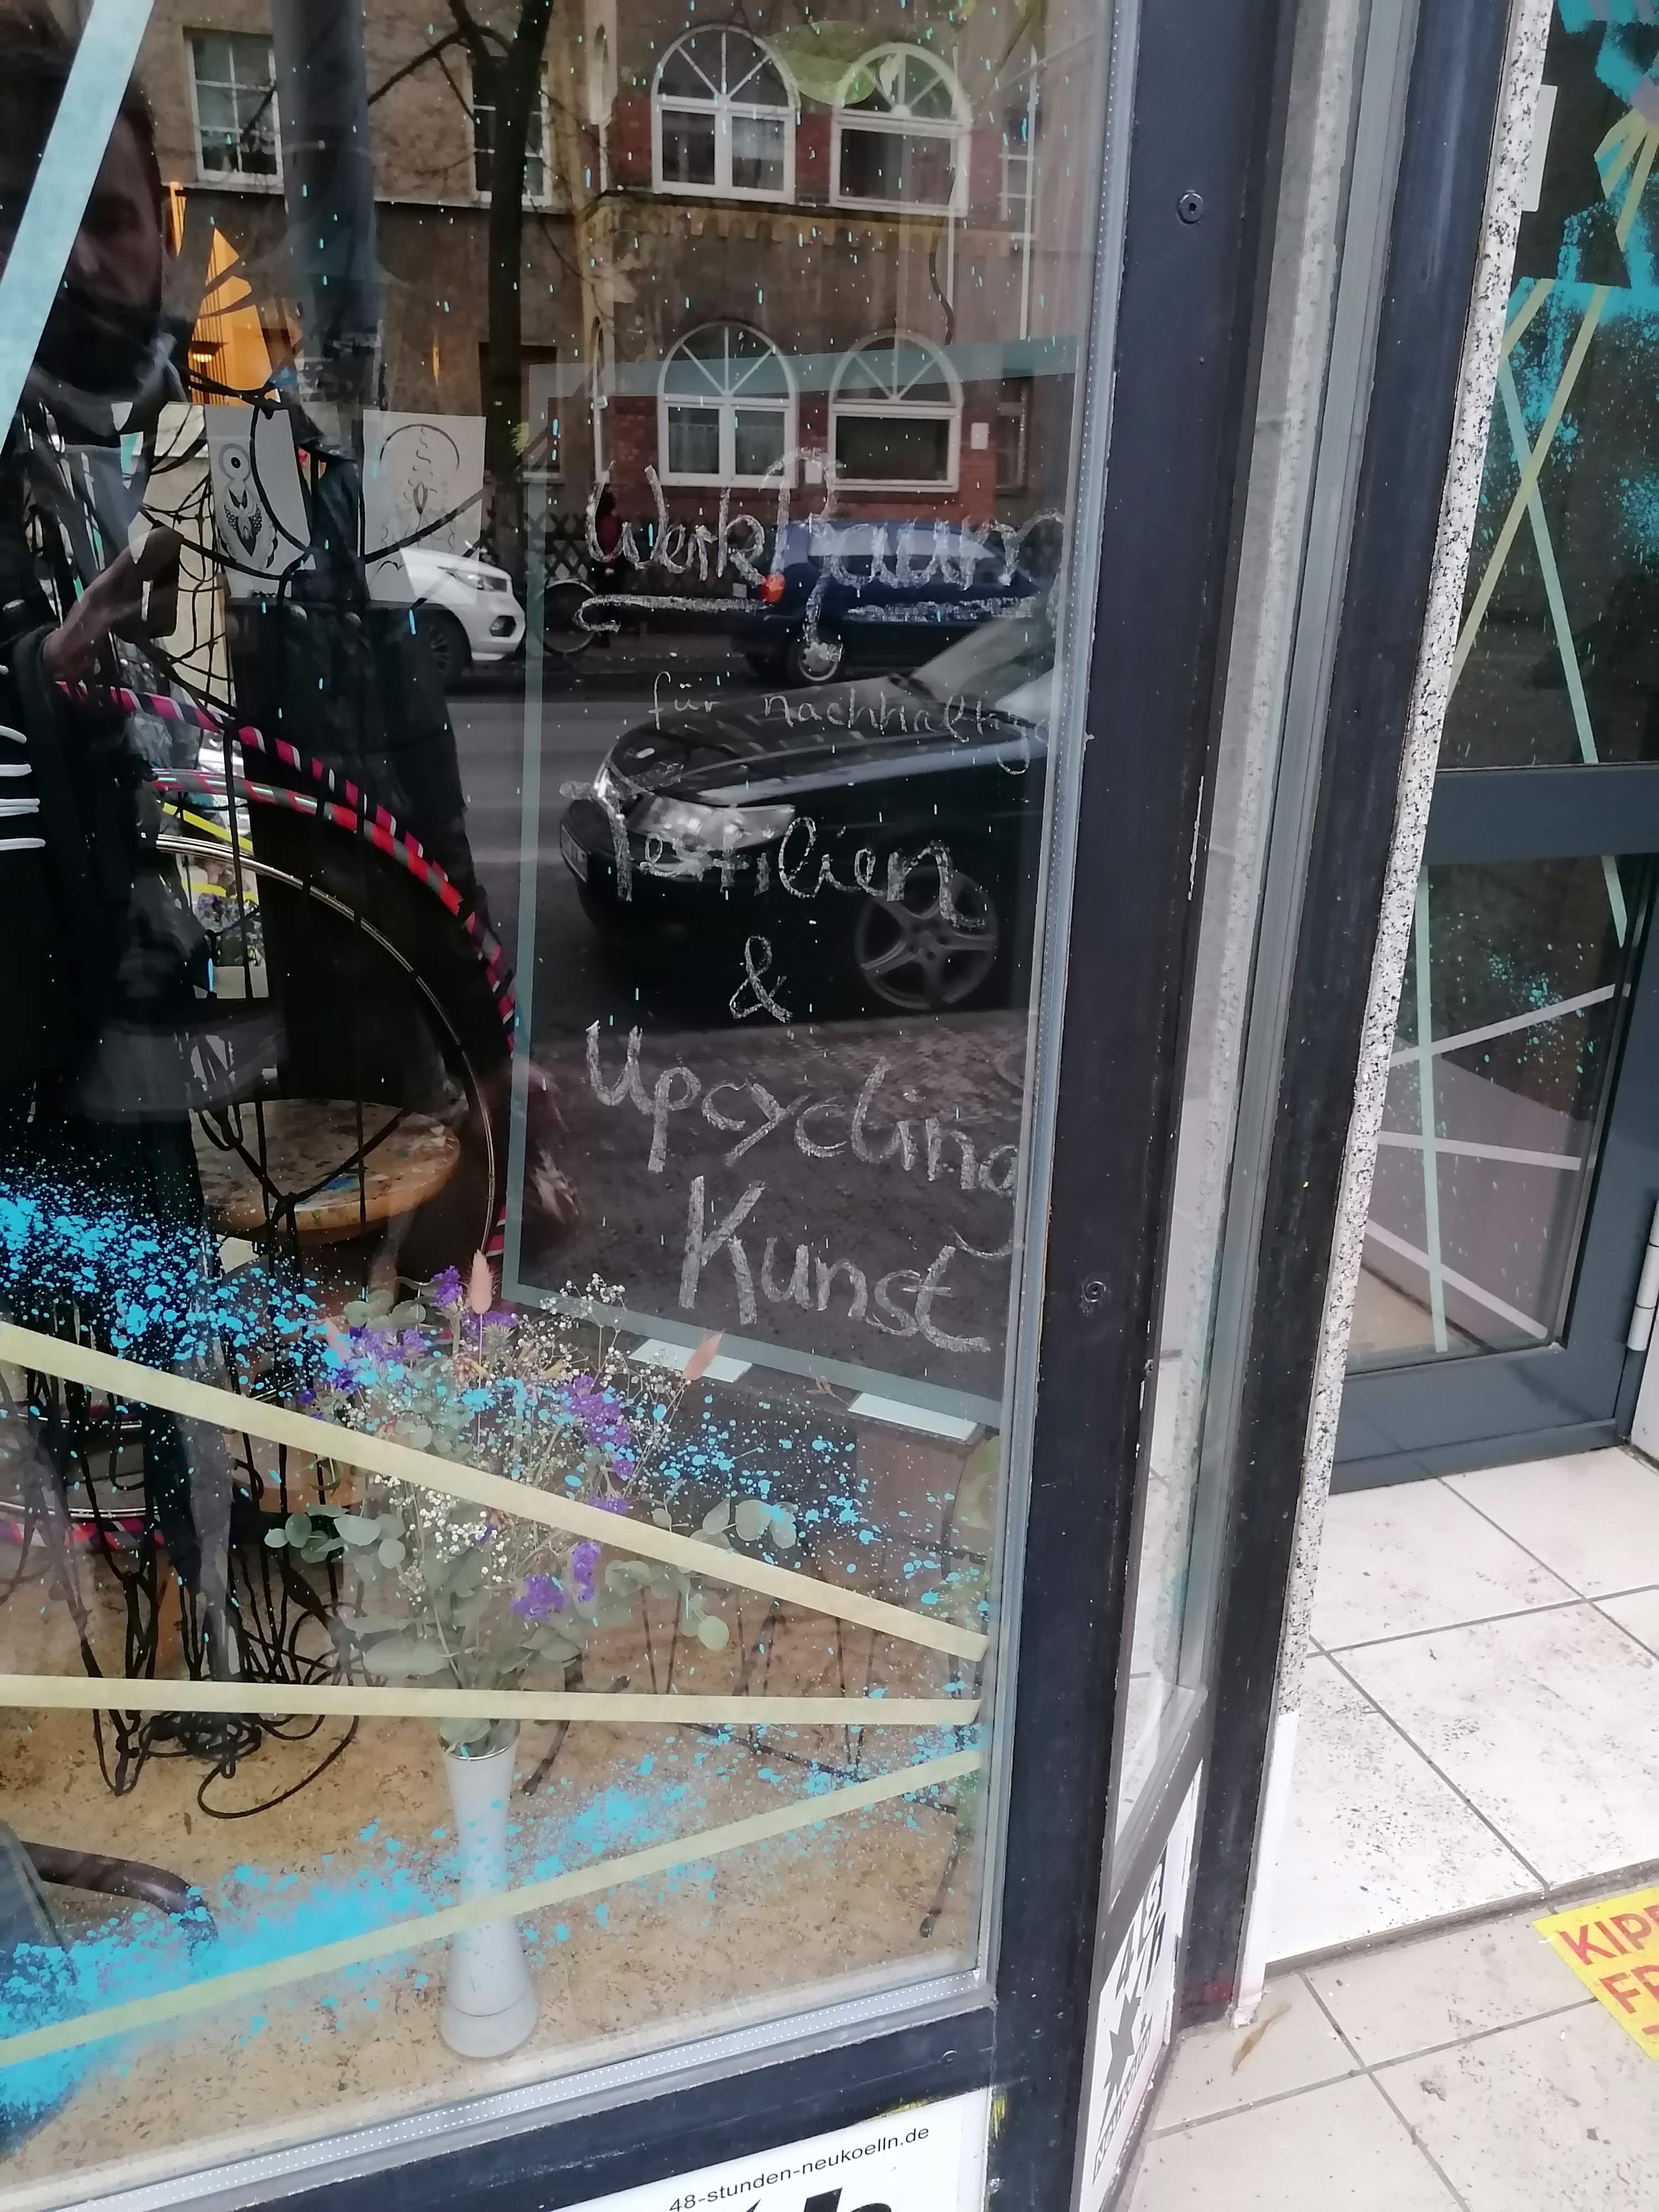 WerkTraum
für nachhaltige
Textilien
&
Upcycling
Kunst
48-stunden-neukoelln.de
48